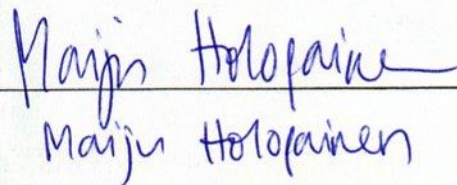 Maiju Holopainen
Maiju Holopainen